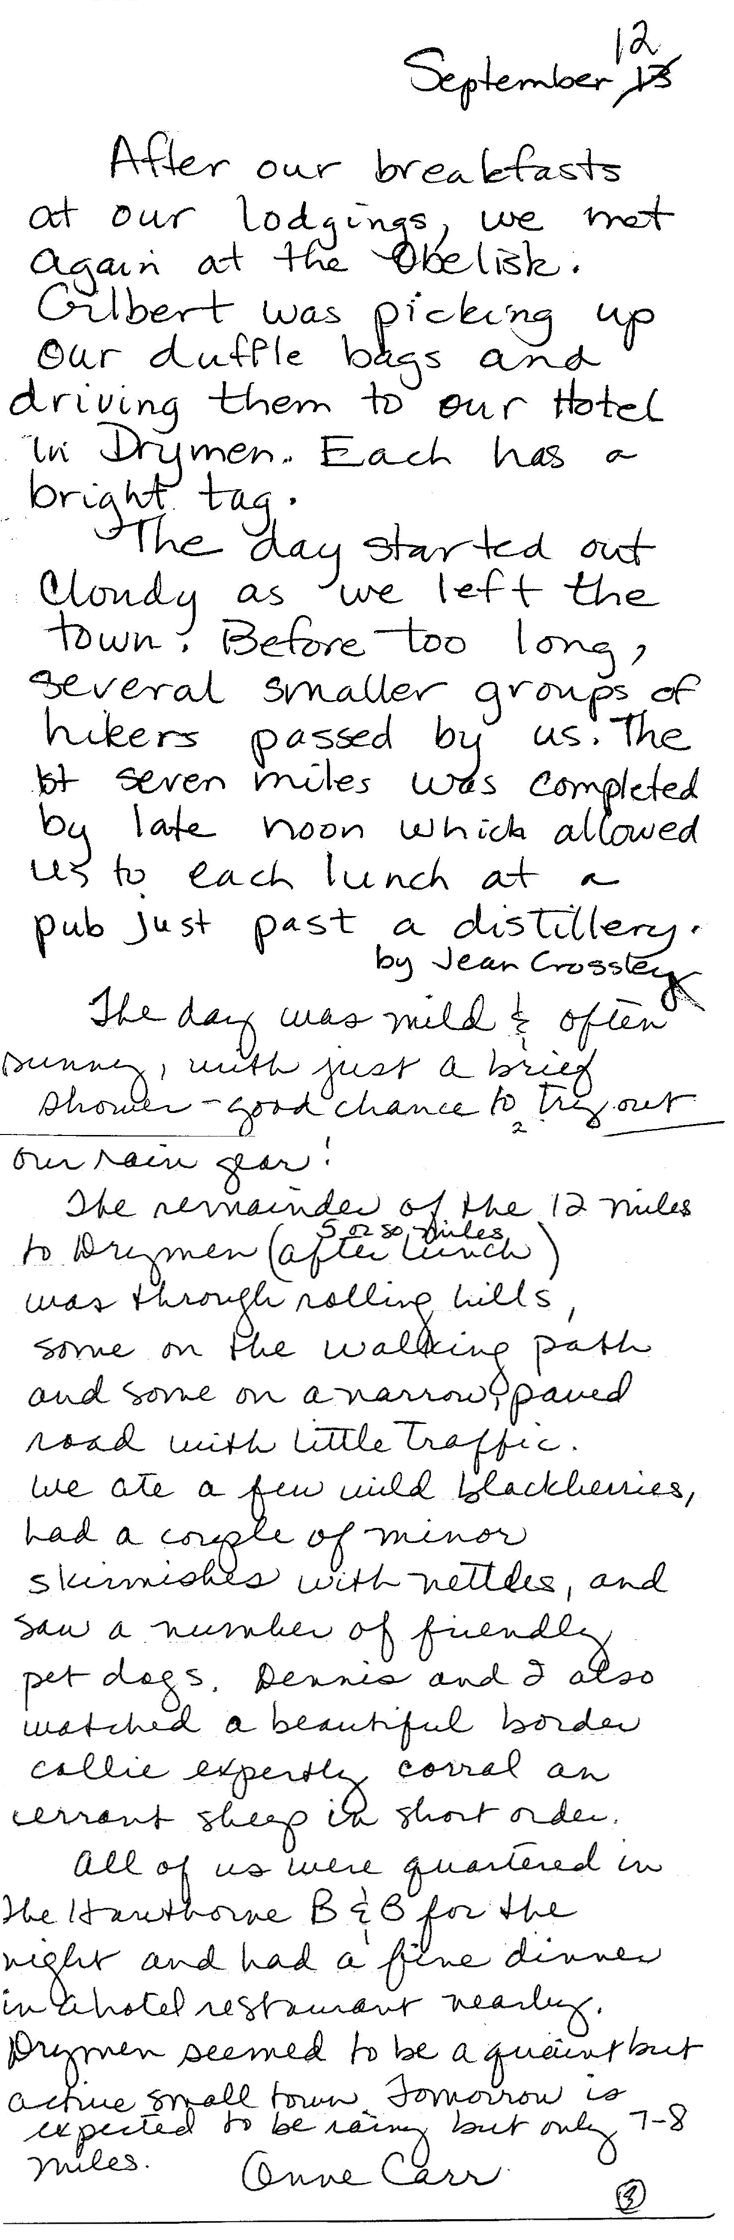 12
September 13
After our breakfasts
at our lodgings, we met
again at the Obelisk.
Gilbert was picking up
our duffle bags and
driving them to our Hotel
in Drymen. Each has a
bright tag.
The day started out
cloudy as we left the
town. Before too long,
several smaller groups of
hikers passed by us. The
1st seven miles was completed
by late noon which allowed
us to each lunch at a
pub just past a distillery.
by Jean Crossley
The day was mild & often
sunny, with just a brief
shower - good chance to try out
2
our rain gear!
The remainder of the 12 miles
5 or so miles
to Drymen (after lunch)
was through rolling hills,
some on the walking path
and some on a narrow, paved
road with little traffic.
We ate a few wild blackberries,
had a couple of minor
skirmishes with nettles, and
saw a number of friendly
pet dogs. Dennis and I also
watched a beautiful border
collie expertly corral an
errant sheep in short order.
All of us were quartered in
the Hawthorne B & B for the
night and had a fine dinner
in a hotel restaurant nearby.
Drymen seemed to be a quaint but
active small town. Tomorrow is
expected to be rainy but only 7-8
miles. Anne Carr
3